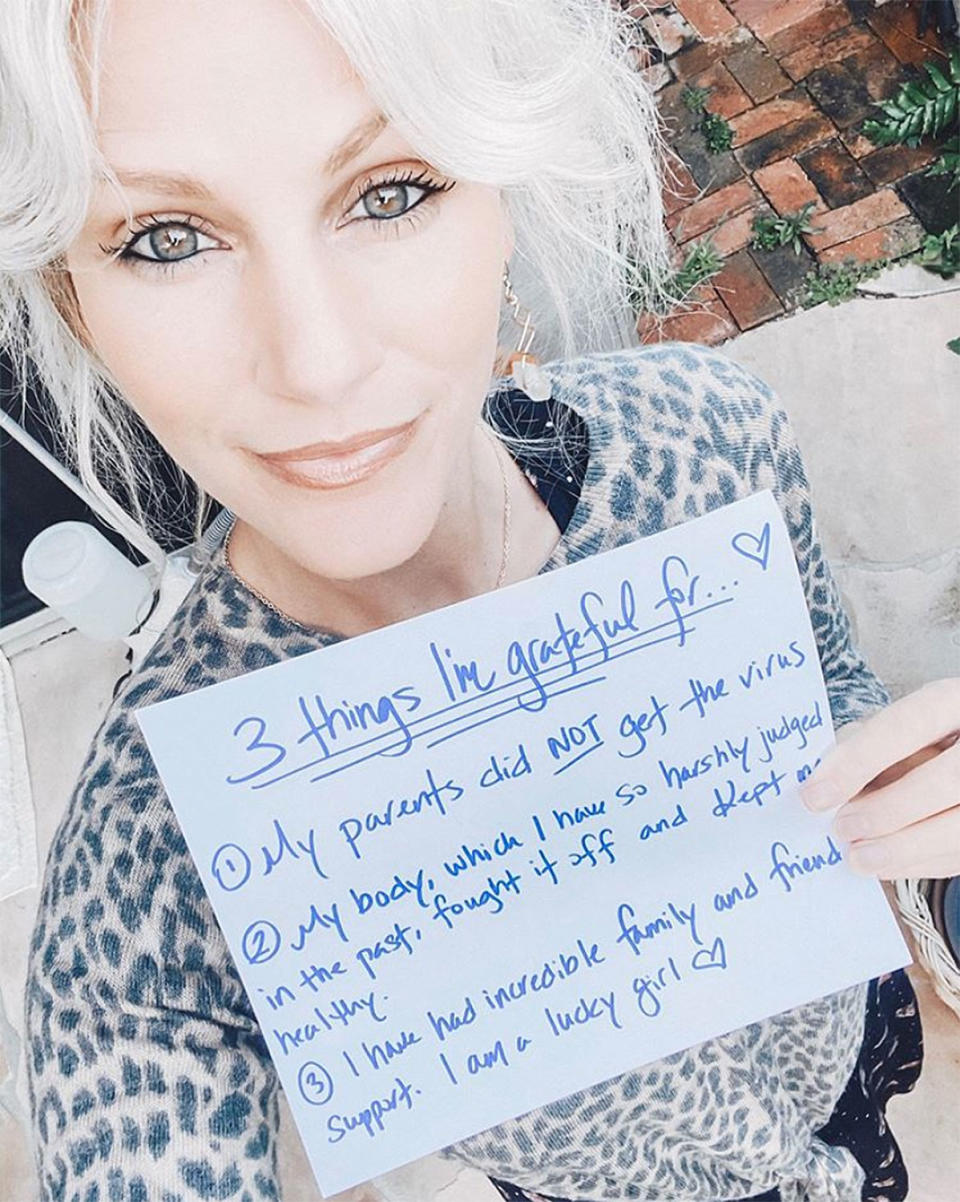 3 things I'm grateful for... ♡
① My parents did NOT get the virus
② My body, which I have so harshly judged
in the past, fought it off and kept me
healthy.
③ I have had incredible family and friend
support. I am a lucky girl ♡